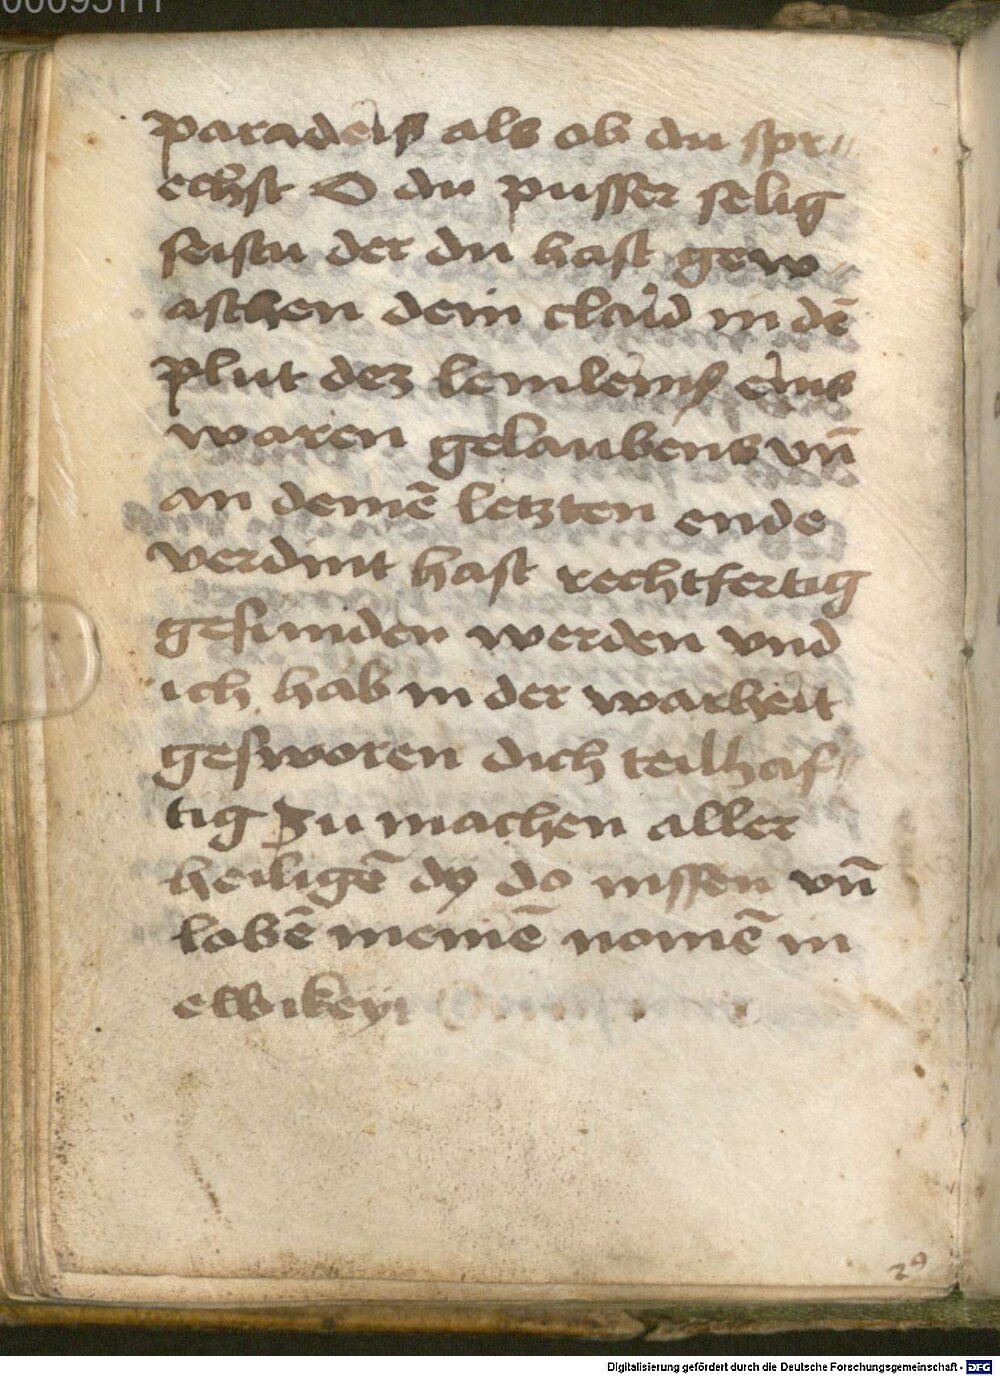 00095111
paradeiß als ob du spr〃
echst O du pusser selig
seistu der du hast gew〃
aschen dein claid in dē
plut dez lemleins eins
waren gelaubens vn̄
an deinē letzten ende
verdint hast rechtfertig
gefunden werden vnd
ich hab in der warheit
gesworen dich teilhaf〃
tig zu machen aller
heiligē dy do nissen vn̄
lobē meinē nomē in
ewikeyt
29
Digitalisierung gefördert durch die Deutsche Forschungsgemeinschaft - DFG